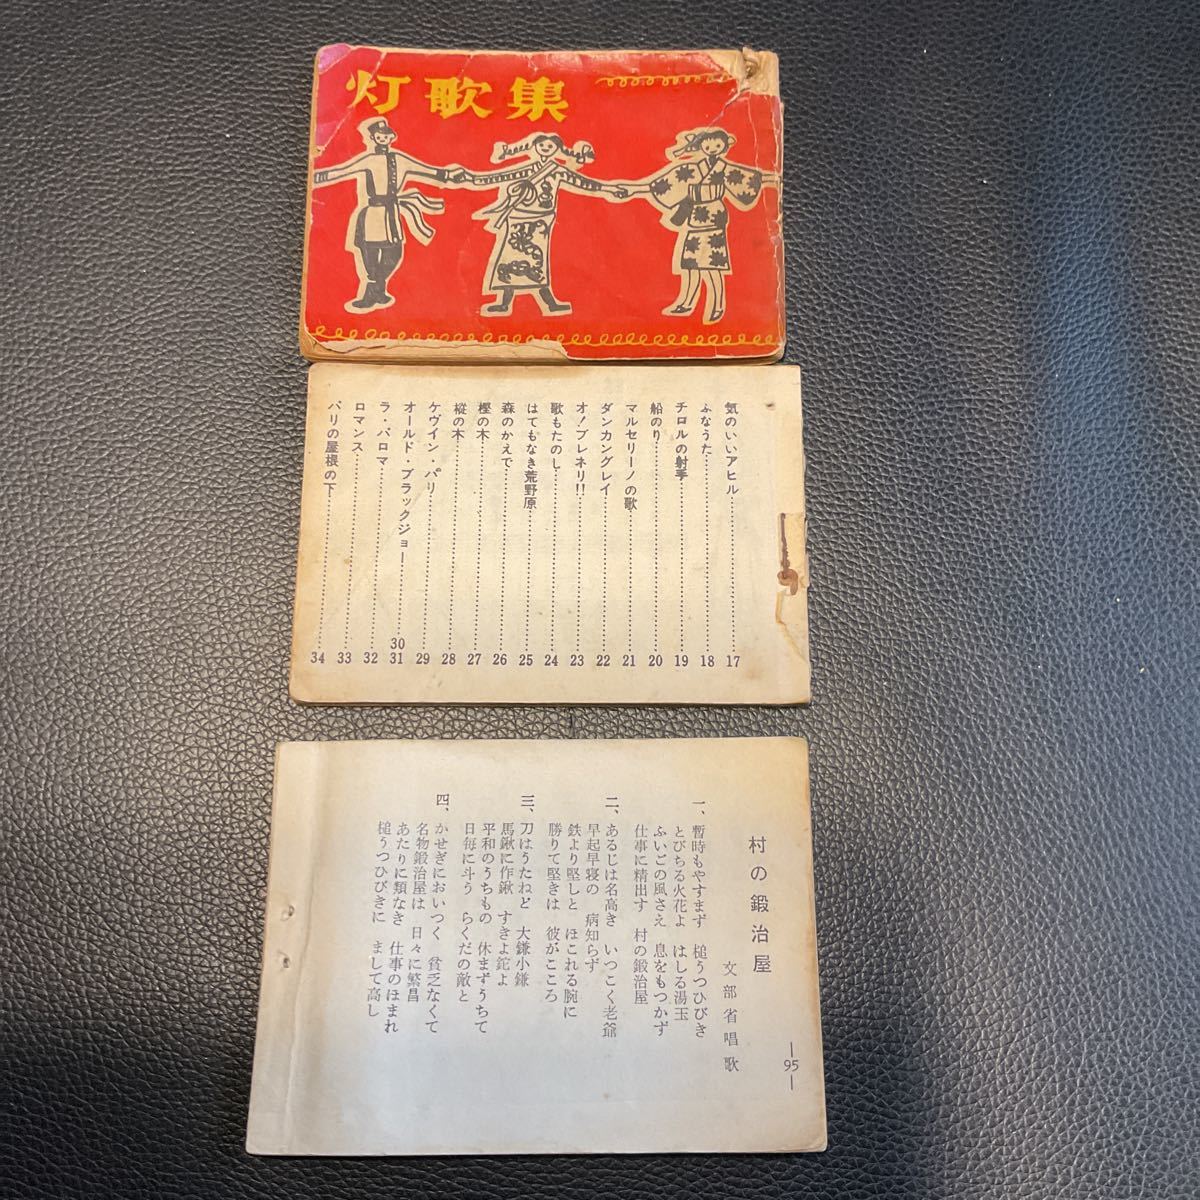 灯歌集
気のいいアヒル……………17
ふなうた……………18
チロルの射手……………19
船のり……………20
マルセリーノの歌……………21
ダンカングレイ……………22
オ！ブレネリ!!……………23
歌もたのし……………24
はてもなき荒野原……………25
森のかえで……………26
樫の木……………27
樅の木……………28
ケヴィン・バリ……………29
オールド・ブラックジョー……………30 31
ラ・パロマ……………32
ロマンス……………33
パリの屋根の下……………34
—95—
村の鍛冶屋
文部省唱歌
一、暫時もやすまず 槌うつひびき
とびちる火花よ はしる湯玉
ふいごの風さえ 息をもつかず
仕事に精出す 村の鍛冶屋
二、あるじは名高き いつこく老爺
早起早寝の 病知らず
鉄より堅しと ほこれる腕に
勝りて堅きは 彼がこころ
三、刀はうたねど 大鎌小鎌
馬鍬に作鍬 すきよ鉈よ
平和のうちもの 休まずうちて
日毎に斗う らくだの敵と
四、かせぎにおいつく 貧乏なくて
名物鍛冶屋は 日々に繁昌
あたりに類なき 仕事のほまれ
槌うつひびきに まして高し